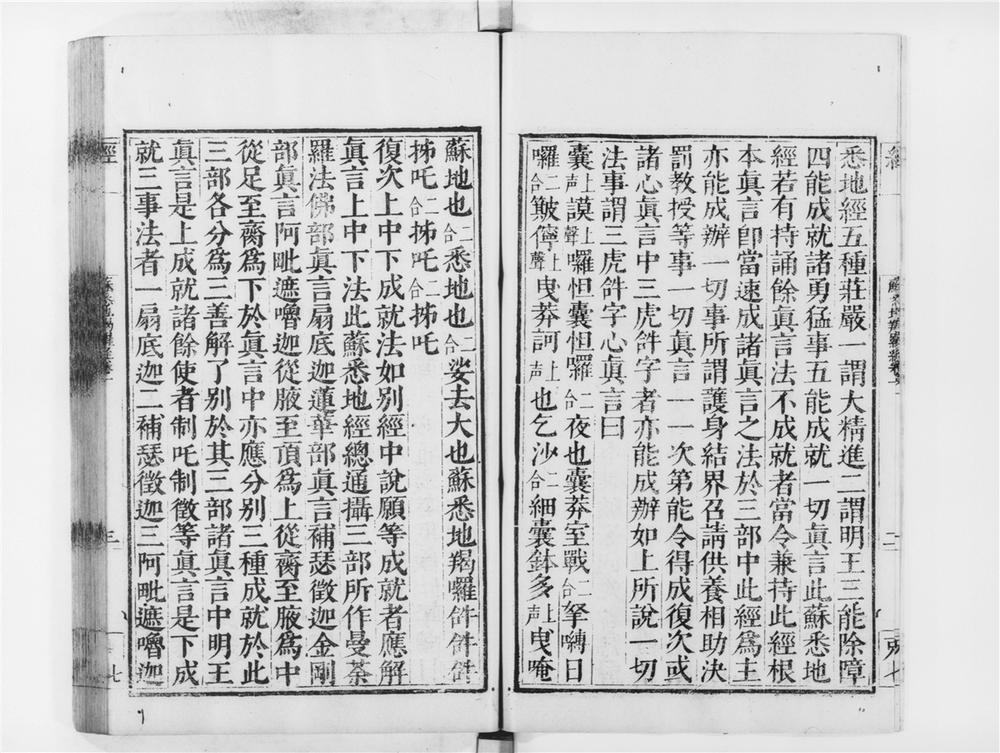 悉地經五種莊嚴一謂大精進二謂明王三能除障
四能成就諸勇猛事五能成就一切眞言此蘇悉地
經若有持誦餘眞言法不成就者當令兼持此經根
本眞言卽當速成諸眞言之法於三部中此經爲主
亦能成辦一切事所謂護身結界召請供養相助決
罰教授等事一切眞言一一次第能令得成復次或
諸心眞言中三虎𤙖字者亦能成辦如上所說一切
法事謂三虎𤙖字心眞言曰
囊上声謨上聲囉怛囊怛囉二合夜也囊莽室戰二合拏囀日
囉二合簸儜上聲曳莽訶上声也乞沙二合細囊鉢多上声曳唵
蘇地也二合悉地也二合娑去大也蘇悉地羯囉𤙖𤙖𤙖
㧊吒二合㧊吒二合㧊吒
復次上中下成就法如別經中說願等成就者應解
眞言上中下法此蘇悉地經總通攝三部所作曼荼
羅法佛部眞言扇底迦蓮華部眞言補瑟徵迦金剛
部眞言阿毗遮嚕迦從腋至頂爲上從臍至腋爲中
從足至臍爲下於眞言中亦應分別三種成就於此
三部各分爲三善解了別於其三部諸眞言中明王
眞言是上成就諸餘使者制吒制徵等眞言是下成
就三事法者一扇底迦二補瑟徵迦三阿毗遮嚕迦
經
三
七
二
七